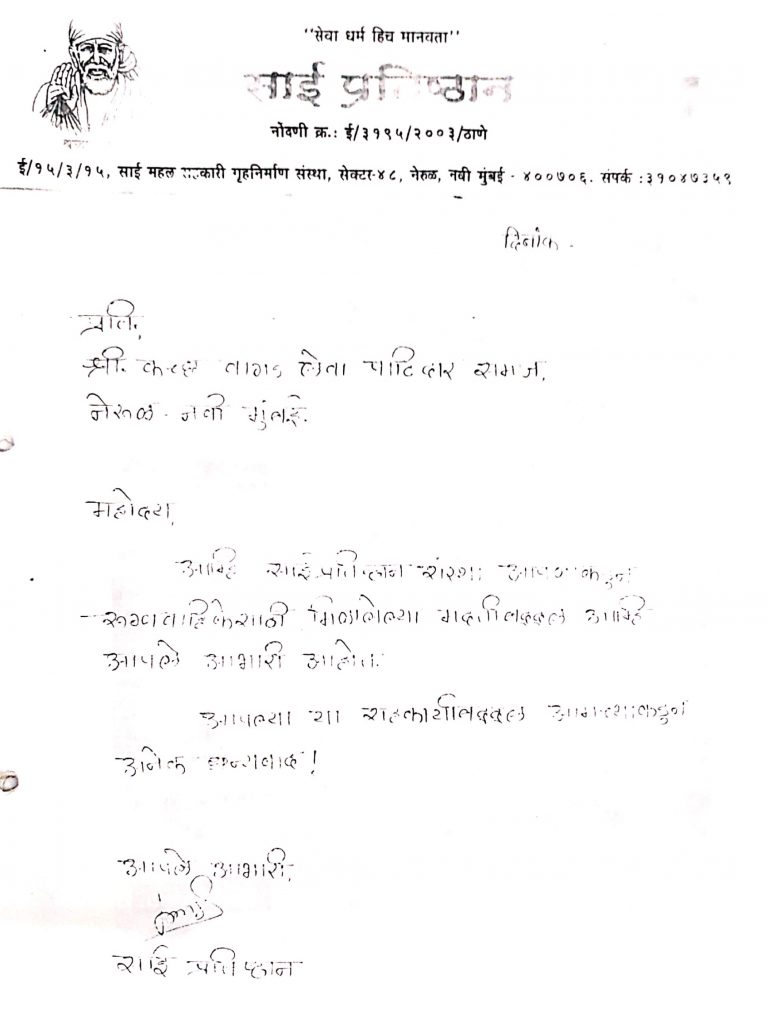 "सेवा धर्म हिच मानवता"
साई प्रतिष्ठान
नोंदणी क्र.: ई/३१९५/२००३/ठाणे
ई/१५/३/१५, साई महल सहकारी गृहनिर्माण संस्था, सेक्टर-४८, नेरुळ, नवी मुंबई - ४००७०६. संपर्क :३१०४७३५९
दिनांक.
प्रति,
श्री. कच्छ वागड लेवा पाटिदार समाज,
नेरुळ - नवी मुंबई.
महोदय,
आम्हि साई प्रतिष्ठान संस्था आपणाकडुन
रुग्णवाहिकेसाठी मिळालेल्या मदतीबद्दल आम्हि
आपले आभारी आहोत.
आपल्या या सहकार्याबद्दल आमच्याकडुन
अनेक धन्यवाद!
आपले आभारी,
साई प्रतिष्ठान